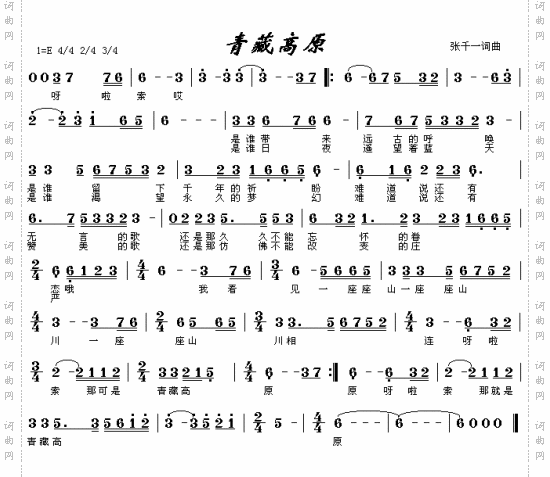 青藏高原
1=E 4/4 2/4 3/4
张千一词曲
0 0 3 7 7 6 | 6 - - 3 | 3 - 3 3 | 3 - - 3 7 |: 6 - 6 7 5 3 2 | 3 - - 6 3 |
呀 啦 索 哎
2 - 2 3 1 6 5 | 6 - - - | 3 3 6 7 6 6 | 7 6 7 5 3 3 2 3 |
是谁带 来 远 古的呼 唤
是谁日 夜 遥 望着蓝 天
3 3 5 6 7 5 3 2 | 3 2 3 1 6 6 5 | 6 - | 6 6 6 2 2 3 6. |
是谁 留 下 千 年的祈 盼 难 道 说还 有
是谁 渴 望 永 久的梦 幻 难 道 说还 有
6. 7 5 3 3 2 3 | 0 2 2 3 5. 5 5 3 | 6 3 2 1. 2 3 | 2 2 3 1 6 6 5 |
无 言 的歌 还是那久 久不能 忘 怀 的眷
赞 美 的歌 还是那仿 佛不能 改 变 的庄
2/4 6 6 1 2 3 | 4/4 6 - - 3 7 6 | 3/4 6 - 5 6 6 5 | 3 3 3 5 6 7 5 2 |
恋哦 我 看 见 一 座座 山一座 座山
严
4/4 3 - 3 7 6 | 6 - 6 5 0 5 | 3 3. 5 6 7 5 2 | 4/4 3 - - 6 3 2 |
川 一 座 座山 川相 连 呀 啦
3/4 2 - 2 1 1 2 | 2/4 3 3 2 1 5 | 4/4 6 - - 3 7 :| 2/4 6 - 6 3 2 | 3/4 2 - 2 1 1 2 |
索 那可是 青藏高 原 原 呀 啦 索 那就是
3 3 5. 3 5 6 1 2 | 3 - 3 5 2 1 | 2/4 5 - | 4/4 6 - - - | 6 - - - | 6 0 0 0 ‖
青藏高 原
词曲网
词曲网
词曲网
词曲网
词曲网
词曲网
词曲网
词曲网